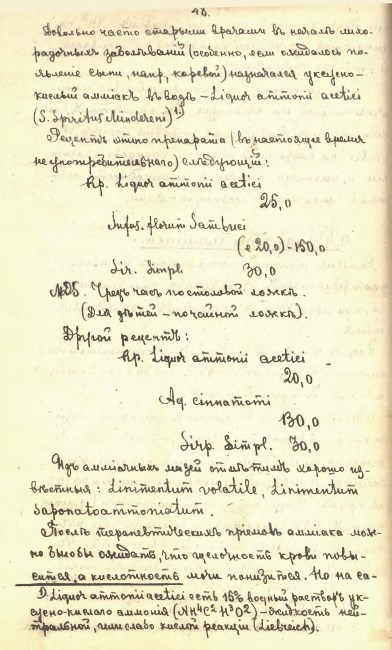 48.
Довольно часто старыми врачами въ началѣ лихо-
радочныхъ заболѣваній (особенно, если ожидалось по-
явленіе сыпи, напр, коревой) назначался уксусно-
кислый амміакъ въ водѣ – Liquor ammonii acetici
(S. Spiritus Mindereri) 1.)
Рецептъ этого препарата (въ настоящее время
не употребительнаго) слѣдующій:
Rp. Liquor ammonii acetici
25,0
Infus. florum Sambuci
(e 20,0) – 150,0
Sir. Simpl. 30,0
MDS. Чрезъ часъ по столовой ложкѣ.
(Для дѣтей – по чайной ложкѣ).
Другой рецептъ:
Rp. Liquor ammonii acetici
20,0
Aq. cinnamomi
130,0
Sirp. Simpl. 30,0
Изъ амміачныхъ мазей отмѣтимъ хорошо из-
вѣстныя: Linimentum volatile, Linimentum
saponatoammoniatum.
Послѣ терапевтическихъ пріемовъ амміака мож-
но было бы ожидать, что щелочность крови повы-
сится, а кислотность мочи понизится. Но на са-
1) Liquor ammonii acetici есть 15% водный растворъ ук-
сусно-кислаго аммонія (NH4C2H3O2) – жидкость ней-
тральной, или слабо кислой реакціи (Liebreich).